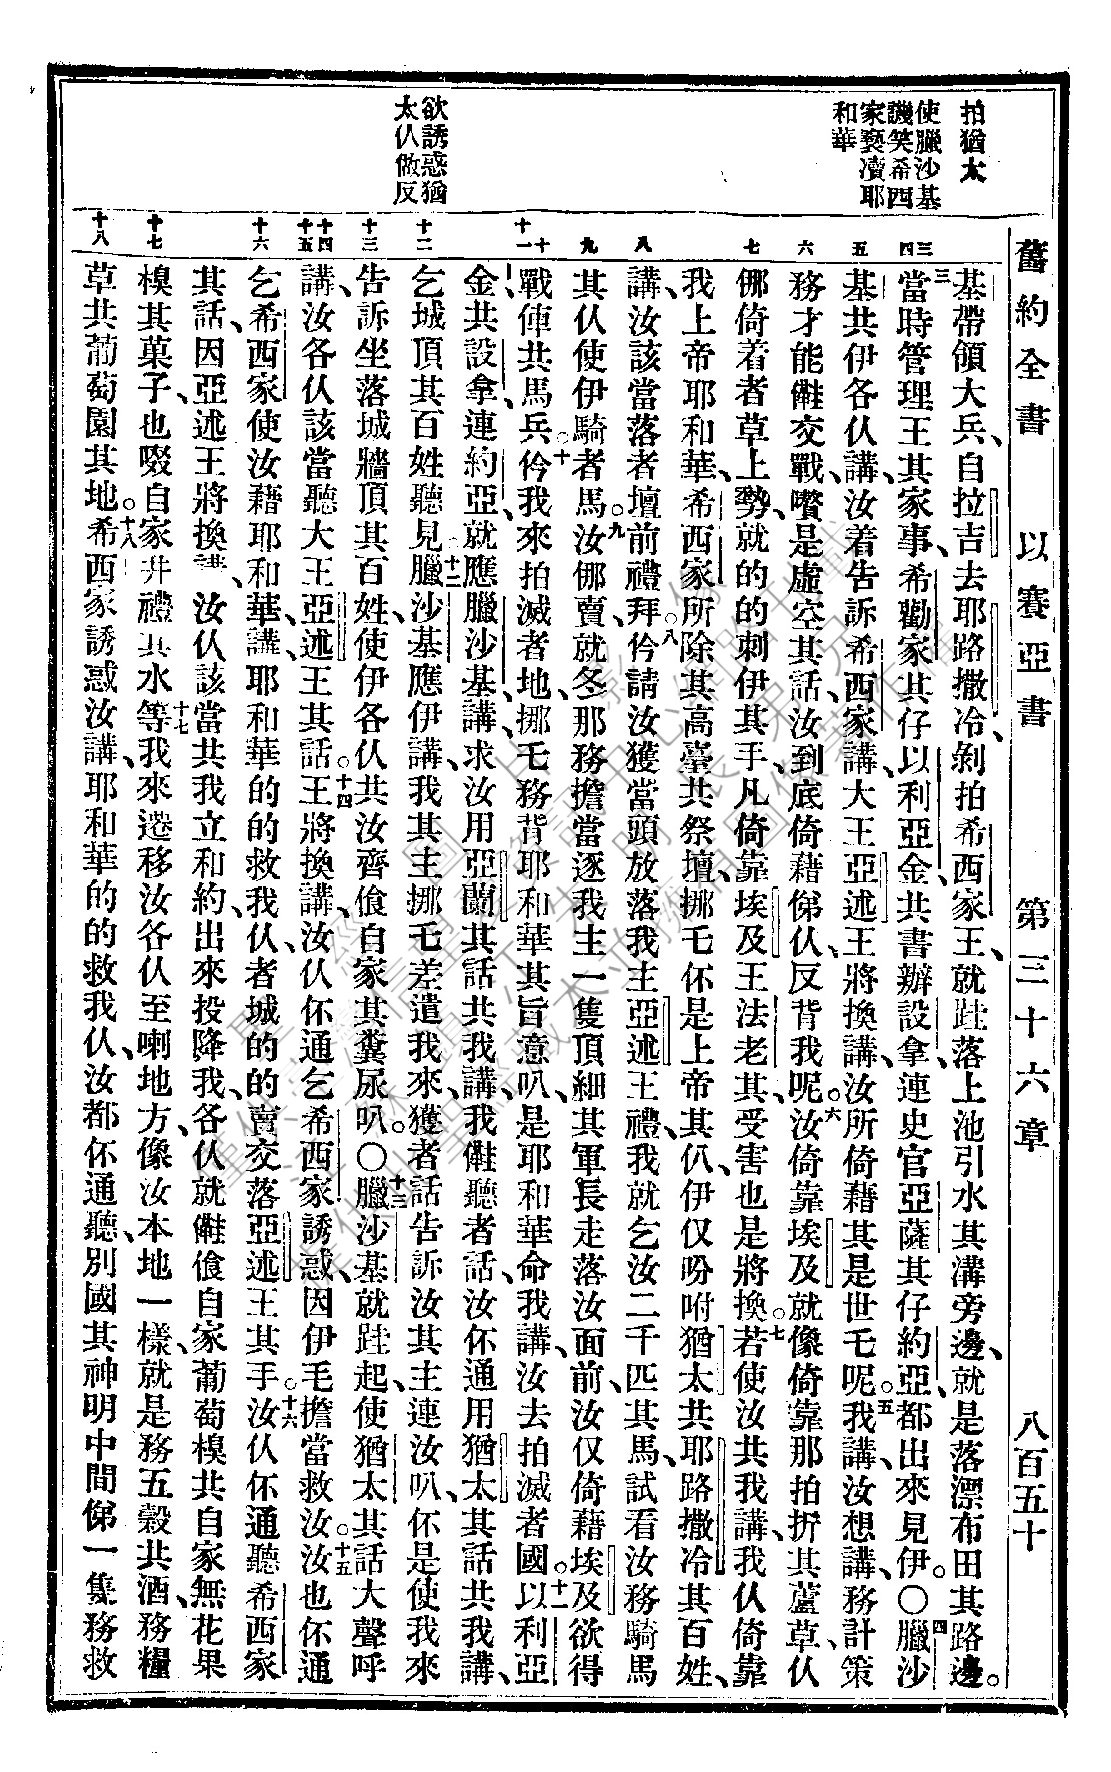 舊約全書 以賽亞書 第三十六章 八百五十
拍猶太
使臘沙基
譏笑希西
家褻凟耶
和華
欲誘惑猶
太仈做反
三 四 五 六 七 八 九 十 十一 十二 十三 十四 十五 十六 十七 十八
基帶領大兵、自拉吉去耶路撒冷、剝拍希西家王、就跬落上池引水其溝旁邊、就是落漂布田其路邊。
三當時管理王其家事、希勸家其仔以利亞金、共書辦設拿、連史官亞薩其仔約亞、都出來見伊。〇四臘沙
基共伊各仈講、汝着告訴希西家講、大王亞述王將換講、汝所倚藉其是世乇呢。五我講、汝想講、務計策
務才能䧹交戰、囋是虛空其話、汝到底倚藉俤仈、反背我呢。六汝倚靠埃及、就像倚靠那拍折其蘆草、仈
倻倚着者草上勢、就的的刺伊其手、凡倚靠埃及王法老其、受害也是將換。七若使汝共我講、我仈倚靠
我上帝耶和華、希西家所除其高臺共祭壇、挪乇伓是上帝其仈、伊仅吩咐猶太共耶路撒冷其百姓、
講、汝該當落者壇前禮拜。八仱請汝獲當頭放落我主亞述王禮、我就乞汝二千匹其馬、試看汝務騎馬
其仈使伊騎者馬。九汝倻賣、就冬那務擔當逐我主一隻頂細其軍長走落汝面前、汝仅倚藉埃及、欲得
戰俥共馬兵。十仱我來拍滅者地、挪乇務背耶和華其旨意叭、是耶和華命我講、汝去拍滅者國。十一以利亞
金共設拿、連約亞、就應臘沙基講、求汝用亞蘭其話共我講、我䧹聽者話、汝伓通用猶太其話共我講、
乞城頂其百姓聽見。十二臘沙基應伊講、我其主挪乇差遣我來、獲者話告訴汝其主、連汝叭、伓是使我來
告訴坐落城牆頂其百姓、使伊各仈共汝齊飡自家其糞尿叭。〇十三臘沙基就跬起、使猶太其話大聲呼
講、汝各仈該當聽大王亞述王其話。十四王將換講、汝仈伓通乞希西家誘惑、因伊毛擔當救汝。十五汝也伓通
乞希西家使汝藉耶和華、講、耶和華的的救我仈、者城的的賣交落亞述王其手。十六汝仈伓通聽希西家
其話、因亞述王將換講、汝仈該當共我立和約、出來投降我、各仈就䧹飡自家葡萄樹共自家無花果
樹其菓子、也啜自家井禮其水。十七等我來遷移汝各仈至喇地方、像汝本地一樣、就是務五穀共酒、務糧
草共葡萄園其地。十八希西家誘惑汝講、耶和華的的救我仈、汝都伓通聽、別國其神明中間俤一隻務救